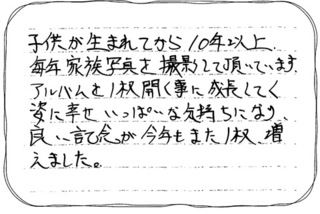 子供が生まれてから10年以上、
毎年家族写真を撮影して頂いています。
アルバムを1枚開く事に成長してく
姿に幸せいっぱいな気持ちになり
良い記念が今年もまた1枚、増
えました。